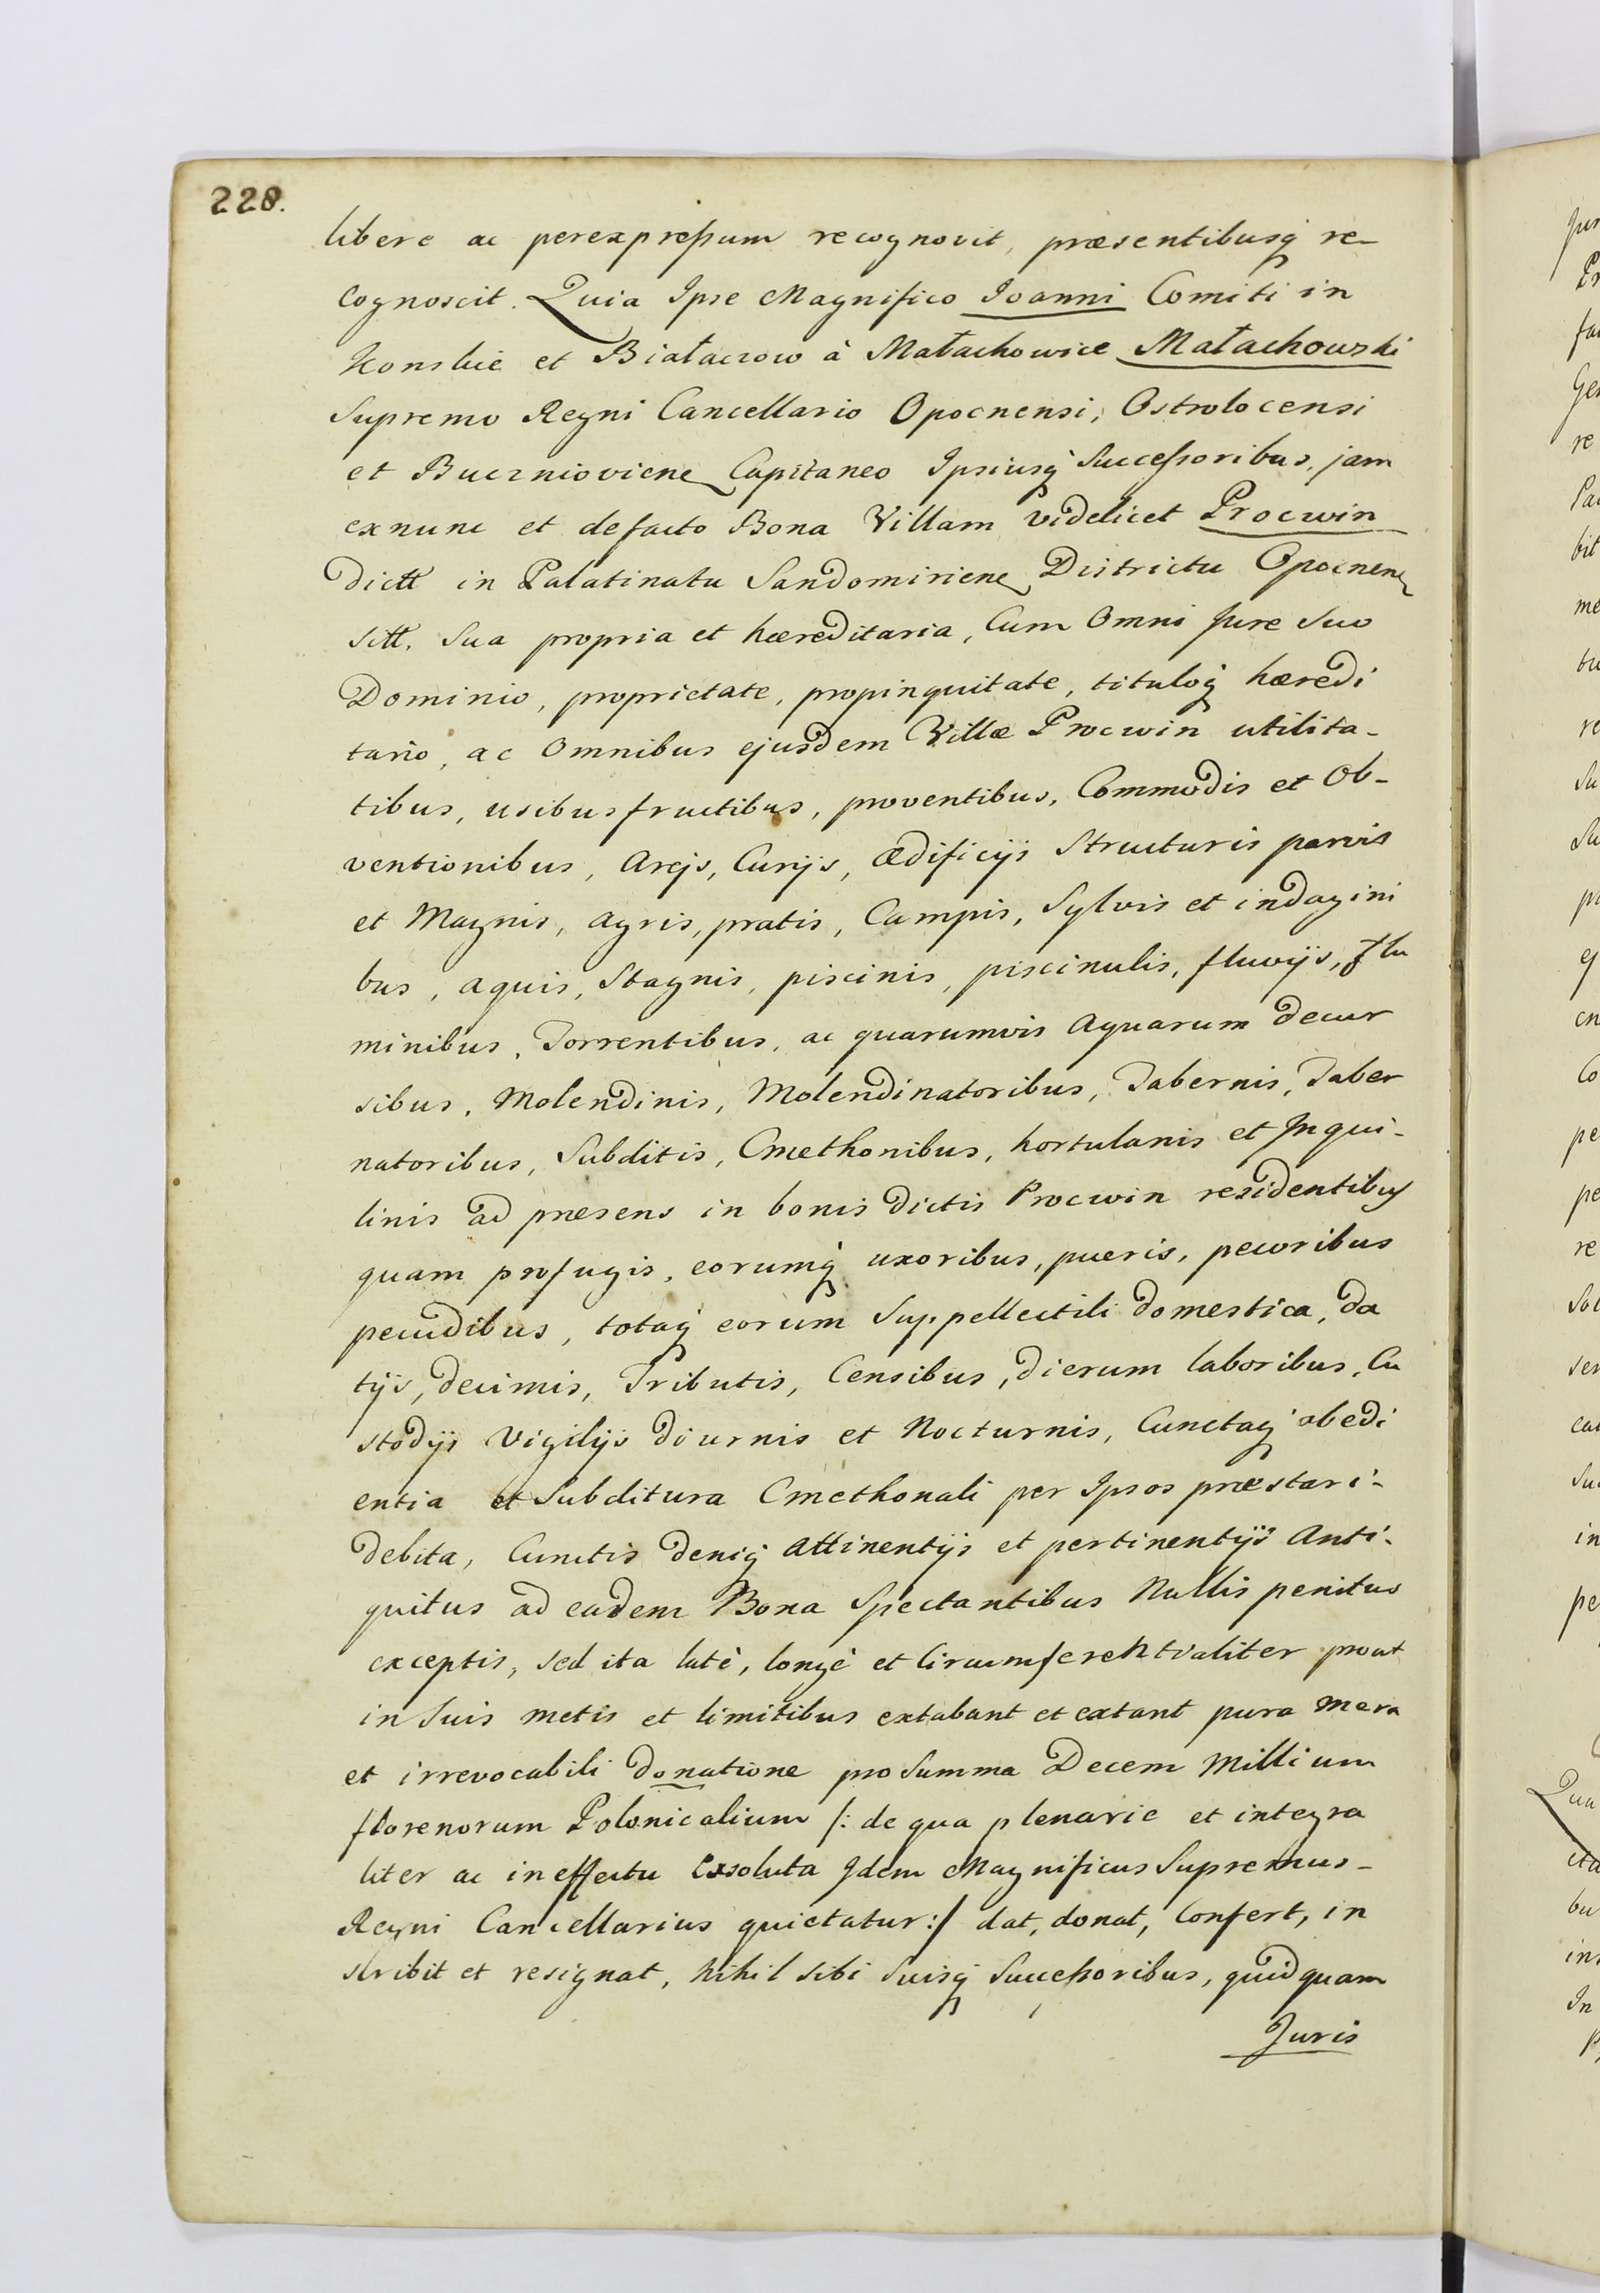 228.
libere ac perexpreſsum recognovit, præsentibusq́ re-
cognoscit. Quia Ipse Magnifico Joanni Comiti in
Konskie et Białaczow à Małachowice Małachowski
Supremo Regni Cancellario Opocnensi, Ostrolocensi
et Bucznioviene Capitaneo Ipsiusq́ Succeſsoribus, jam
exnunc et defacto Bona Villam videlicet Procwin
dictt in Palatinatu Sandomiriene Districtu Opocnene
sitt. Sua propria et hæreditaria, Cum Omni Jure Suo
Dominio, proprietate, propinquitate, tituloq́ hæredi
tario, ac Omnibus ejusdem Villæ Procwin utilita-
tibus, usibusfructibus, proventibus, Commodis et Ob-
ventionibus, Arejs, Curijs, ædificijs Structuris parvis
et Magnis, agris, pratis, Campis, Sylvis et indagini
bus, aquis, Stagnis, piscinis, piscinulis, fluvijs, flu
minibus, Torrentibus, ac quarumvis Aquarum decur
sibus, Molendinis, Molendinatoribus, Tabernis, Taber
natoribus, Subditis, Cmethonibus, hortulanis et Inqui-
linis ad præsens in bonis dictis Procwin residentibus
quam profugis, eorumq́ uxoribus, pueris, pecoribus
pecudibus, totaq́ eorum Suppellectili domestica, da
tijs, decimis, Tributis, Censibus, dierum laboribus, Cu
stodijs Vigilijs diurnis et Nocturnis, Cunctaq́ obedi
entia et Subditura Cmethonali per Ipsos præstari-
debita, Cunctis deniq́ attinentijs et pertinentijs Anti-
quitus ad eadem Bona Spectantibus Nullis penitus
exceptis, sed ita latè, longè et Circumferentialiter prout
in Suis metis et limitibus extabant et extant pura mera
et irrevocabili donatione pro Summa Decem Millium
florenorum Polonicalium /: de qua plenarie et integra
liter ac in effectu Exsoluta Idem Magnificus Supremus-
Regni Cancellarius quietatur :/ dat, donat, Confert, in
scribit et resignat, nihil sibi Suisq́ Succeſsoribus, quidquam
Juris